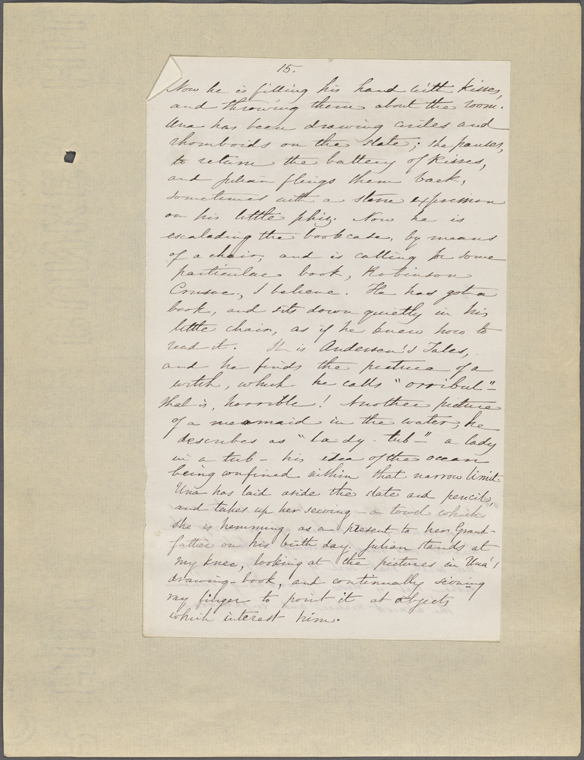 15.
Now he is filling his hand with kisses,
and throwing them about the room.
Una has been drawing circles and
rhomboids on the slate; she pauses,
to return the battery of kisses,
and Julian flings them back,
sometimes with a stern expression
on his little phiz. Now he is
escalading the bookcase, by means
of a chair, and is calling for some
particular book, Robinson
Crusoe, I believe. He has got a
book, and sits down quietly in his
little chair, as if he knew how to
read it. It is Anderson's Tales,
and he finds the picture of a
witch, which he calls "orribul" -
that is, horrible! Another picture
of a mermaid in the water, he
describes as "lady - tub" - a lady
in a tub - his idea of the ocean
being confined within that narrow limit.
Una has laid aside the slate and pencil,
and takes up her sewing - a towel which
she is hemming as a present to her Grand-
father on his birth day. Julian stands at
my knee, looking at the pictures in Una's
drawing-book, and continually seizing
my finger to point it at objects
which interest him.